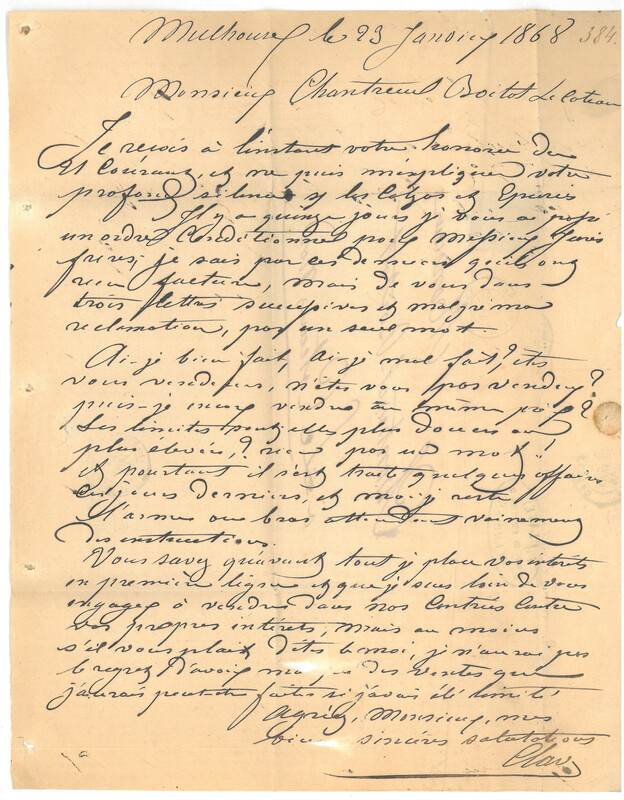 Mulhouse le 23 Janvier 1868 384.
Monsieur Chantreuil Boitot Le Coteau
Je reçois à l'instant votre honorée du
21 Courant, et ne puis m'expliquer votre
profond silence
Il y a quinze jours je vous ai
un ordre Conditionnel pour Messieurs
frères; je sais par ces derniers qu'ils ont
reçu facture, mais de vous dans
trois lettres successives et malgré ma
réclamation, pas un seul mot.
Ai-je bien fait, ai-je mal fait, êtes
vous vendeurs, n'êtes vous pas vendeur?
puis-je encore vendre au même prix?
Les limites sont elles plus douces ou
plus élevées,? rien pas un mot!!
et pourtant il s'est traité quelques affaires
ces jours derniers, et moi je reste
l'arme au bras attendant vainement
des instructions.
Vous savez qu'avant tout je place vos intérêts
en première ligne et que je suis loin de vous
engager à vendre dans nos Contrées Contre
vos propres intérêts, mais au moins
s'il vous plait dites le moi, je n'aurai pas
le regret d'avoir des ventes que
j'aurais peut être faites si j'avais été limité
Agréez, Monsieur, mes
bien sincères salutations